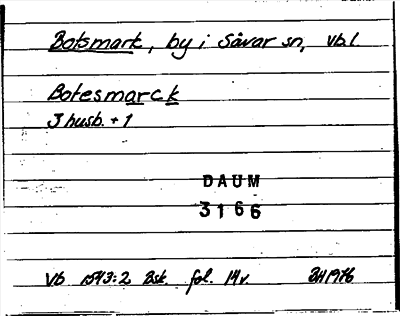 Botsmark, by i Sävar sn, Vb.l.
Botesmarck
3 husb. + 1
DAUM
3166
Vb 1543:2 Bsk. fol. 14v. BH 1976